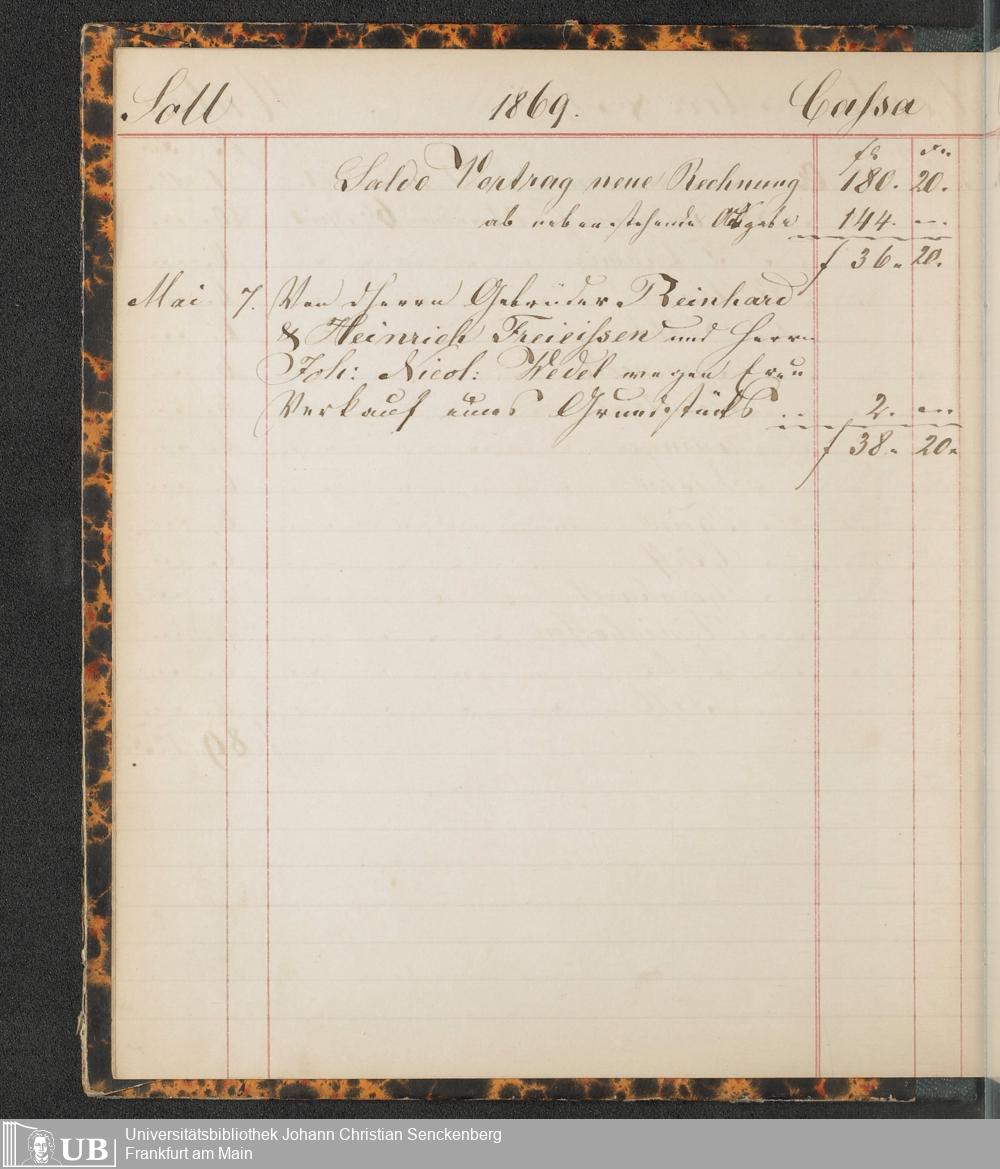 Soll 1869. Cassa
fl xr
Saldo Vortrag neue Rechnung 180. 20.
ab nebenstehende Abgabe 144. --
f 36. 20.
Mai 7. Von dHerrn Gebrüder Reinhard
& Heinrich Freieißen und Herrn
Joh: Nicol: Wedel wegen
Verkauf eines Grundstücks .. 2. --
f 38. 20.
UB
Universitätsbibliothek Johann Christian Senckenberg
Frankfurt am Main